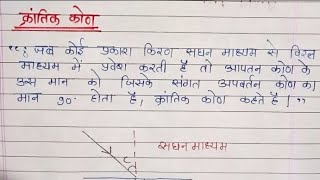 क्रांतिक कोण
"; जब कोई प्रकाश किरण सघन माध्यम से विरल
माध्यम में प्रवेश करती है तो आपतन कोण के
उस मान को जिसके संगत अपवर्तन कोण का
मान 90° होता है, क्रांतिक कोण कहते है। "
सघन माध्यम